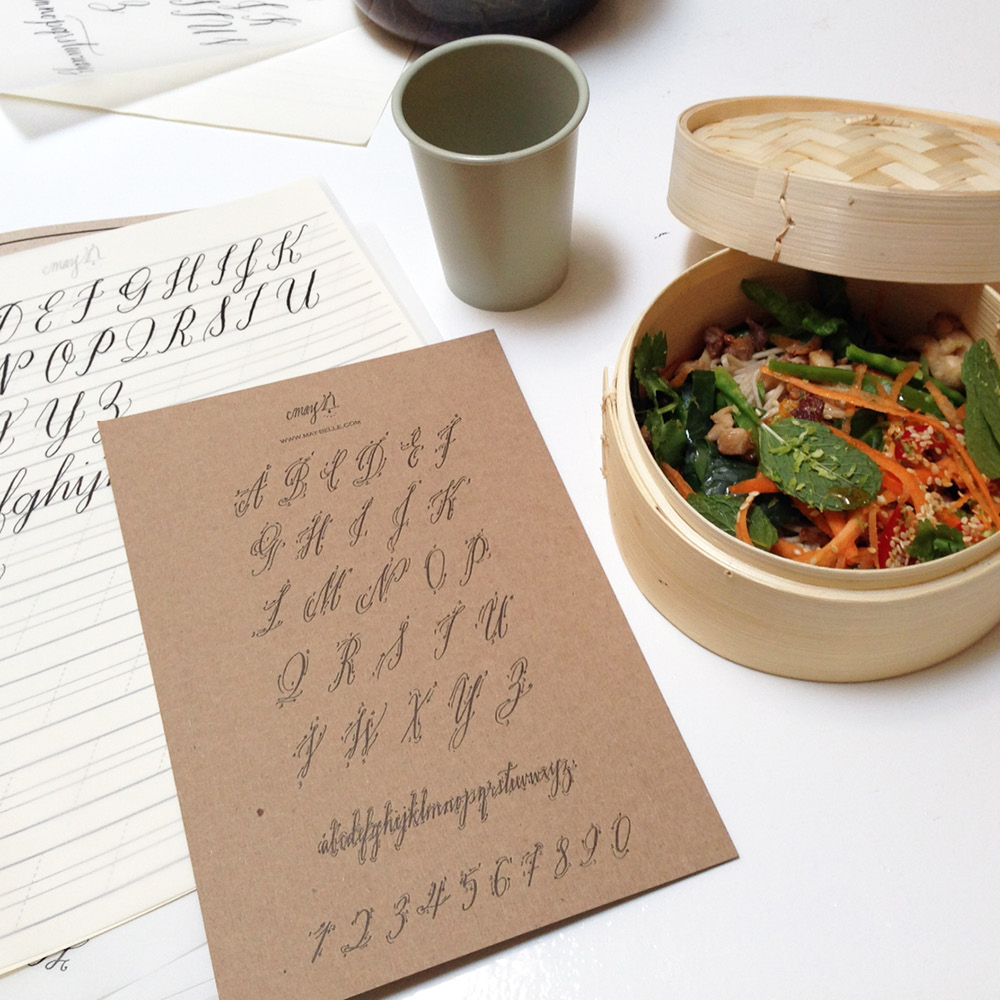 may
WWW.MAYBELLE.COM
A B C D E F
G H I J K
L M N O P
Q R S T U
V W X Y Z
abcdefghijklmnopqrstuvwxyz
1 2 3 4 5 6 7 8 9 0
may
D E F G H I J K
N O P Q R S T U
X Y Z
fghij